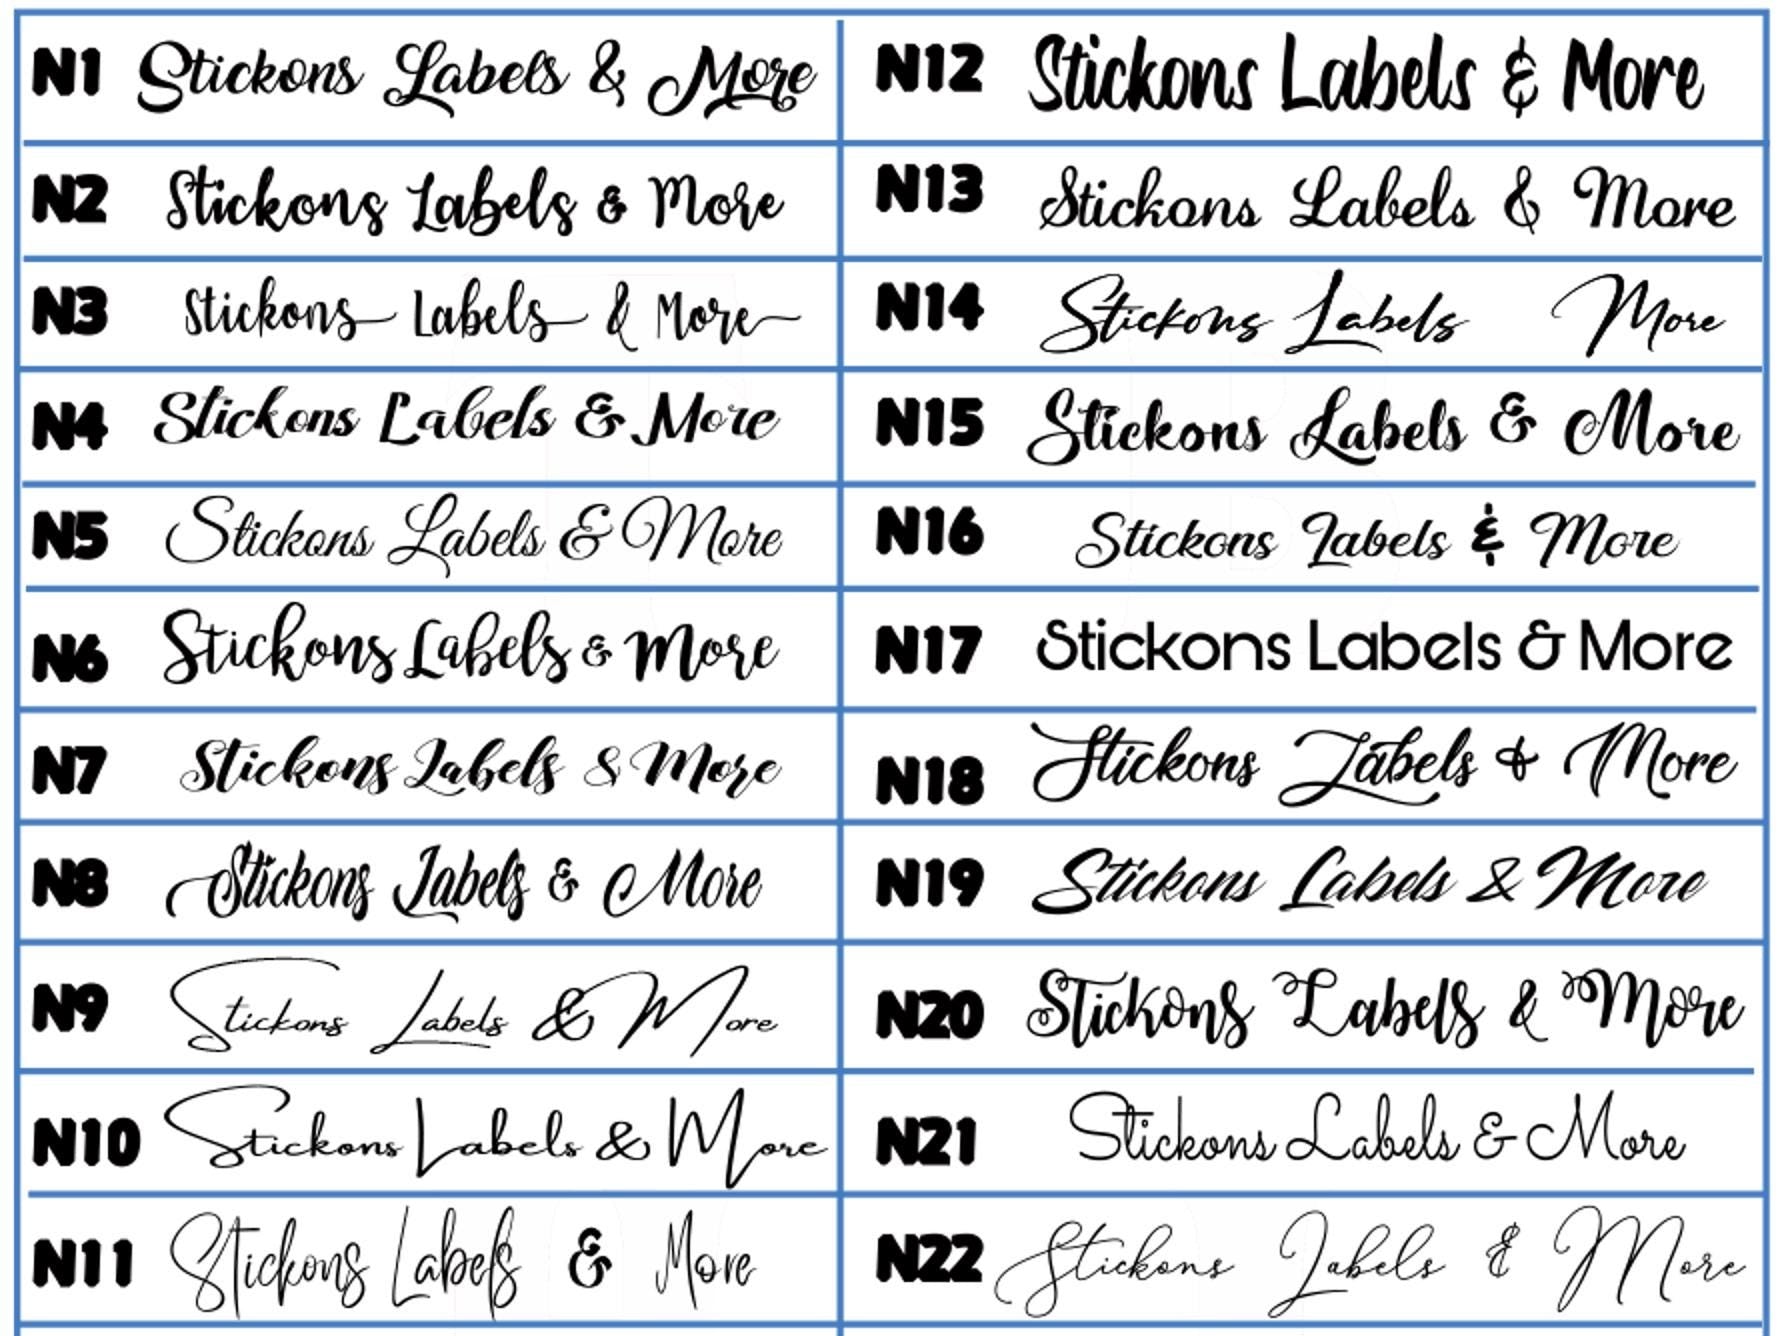 N1 Stickons Labels & More
N2 Stickons Labels & More
N3 Stickons Labels & More
N4 Stickons Labels & More
N5 Stickons Labels & More
N6 Stickons Labels & More
N7 Stickons Labels & More
N8 Stickons Labels & More
N9 Stickons Labels & More
N10 Stickons Labels & More
N11 Stickons Labels & More
N12 Stickons Labels & More
N13 Stickons Labels & More
N14 Stickons Labels More
N15 Stickons Labels & More
N16 Stickons Labels & More
N17 Stickons Labels & More
N18 Stickons Labels & More
N19 Stickons Labels & More
N20 Stickons Labels & More
N21 Stickons Labels & More
N22 Stickons Labels & More